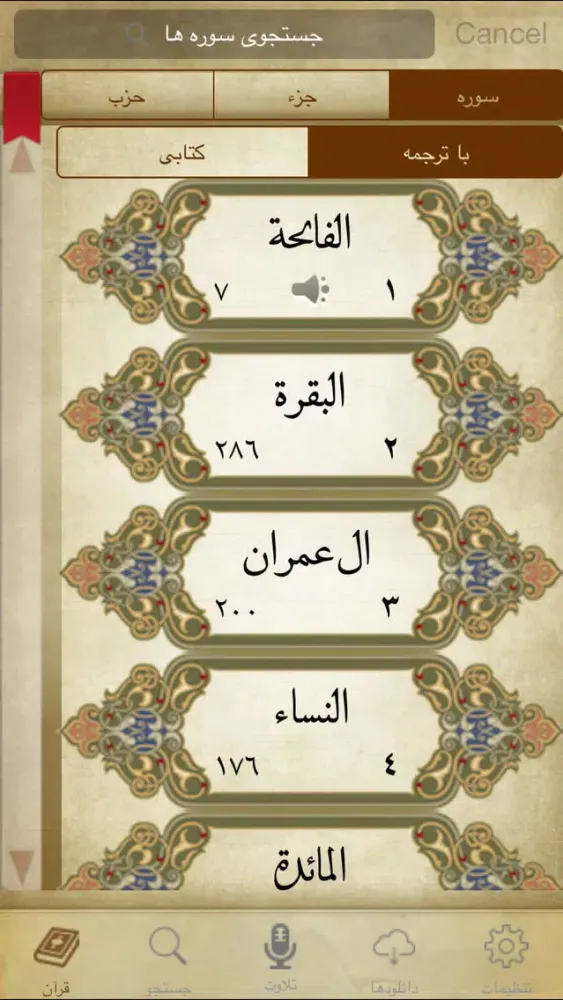 جستجوی سوره ها Cancel
سوره جزء حزب
با ترجمه کتابی
الفاتحة
١ ٧
البقرة
٢ ٢٨٦
ال عمران
٣ ٢٠٠
النساء
٤ ١٧٦
المائدة
تنظیمات دانلودها تلاوت جستجو قرآن